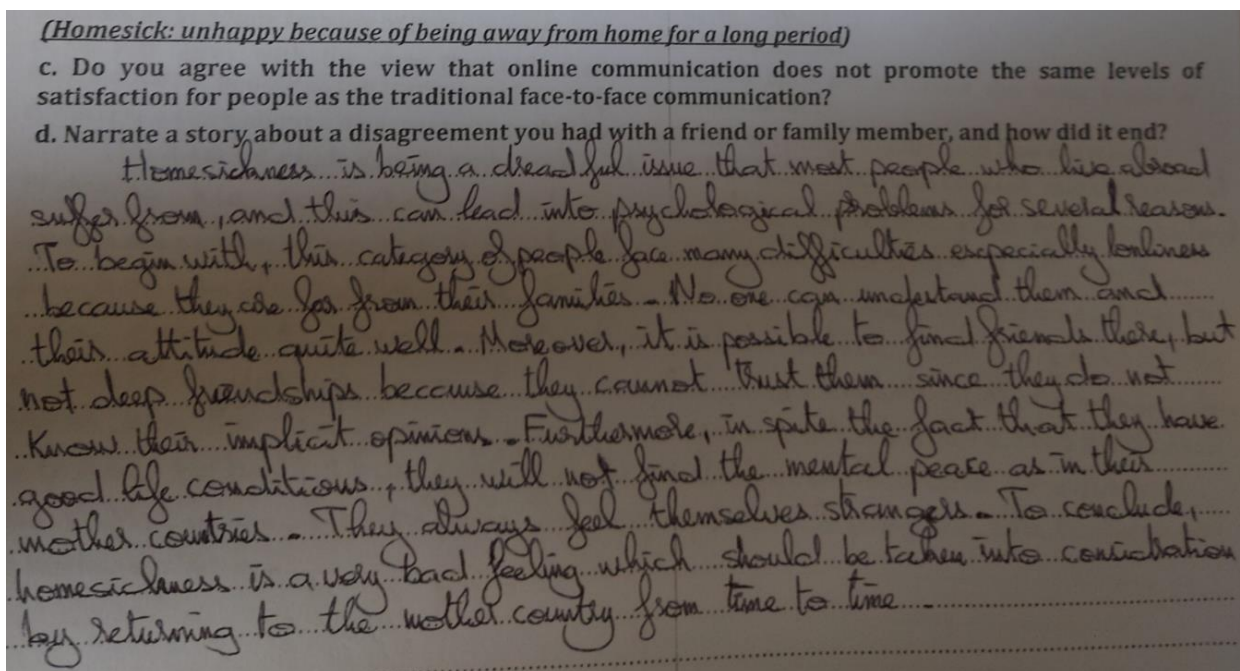 (Homesick: unhappy because of being away from home for a long period)
c. Do you agree with the view that online communication does not promote the same levels of
satisfaction for people as the traditional face-to-face communication?
d. Narrate a story about a disagreement you had with a friend or family member, and how did it end?
Homesickness is being a dreadful issue that most people who live abroad
suffer from, and this can lead into psychological problems for several reasons.
To begin with, this category of people face many difficulties especially lonliness
because they are far from their families. No one can understand them and
their attitude quite well. Moreover, it is possible to find friends there, but
not deep friendships because they cannot trust them since they do not
know their implicit opinions. Furthermore, in spite the fact that they have
good life conditions, they will not find the mental peace as in their
mother countries. They always feel themselves strangers. To conclude,
homesickness is a very bad feeling which should be taken into
by returning to the mother country from time to time.